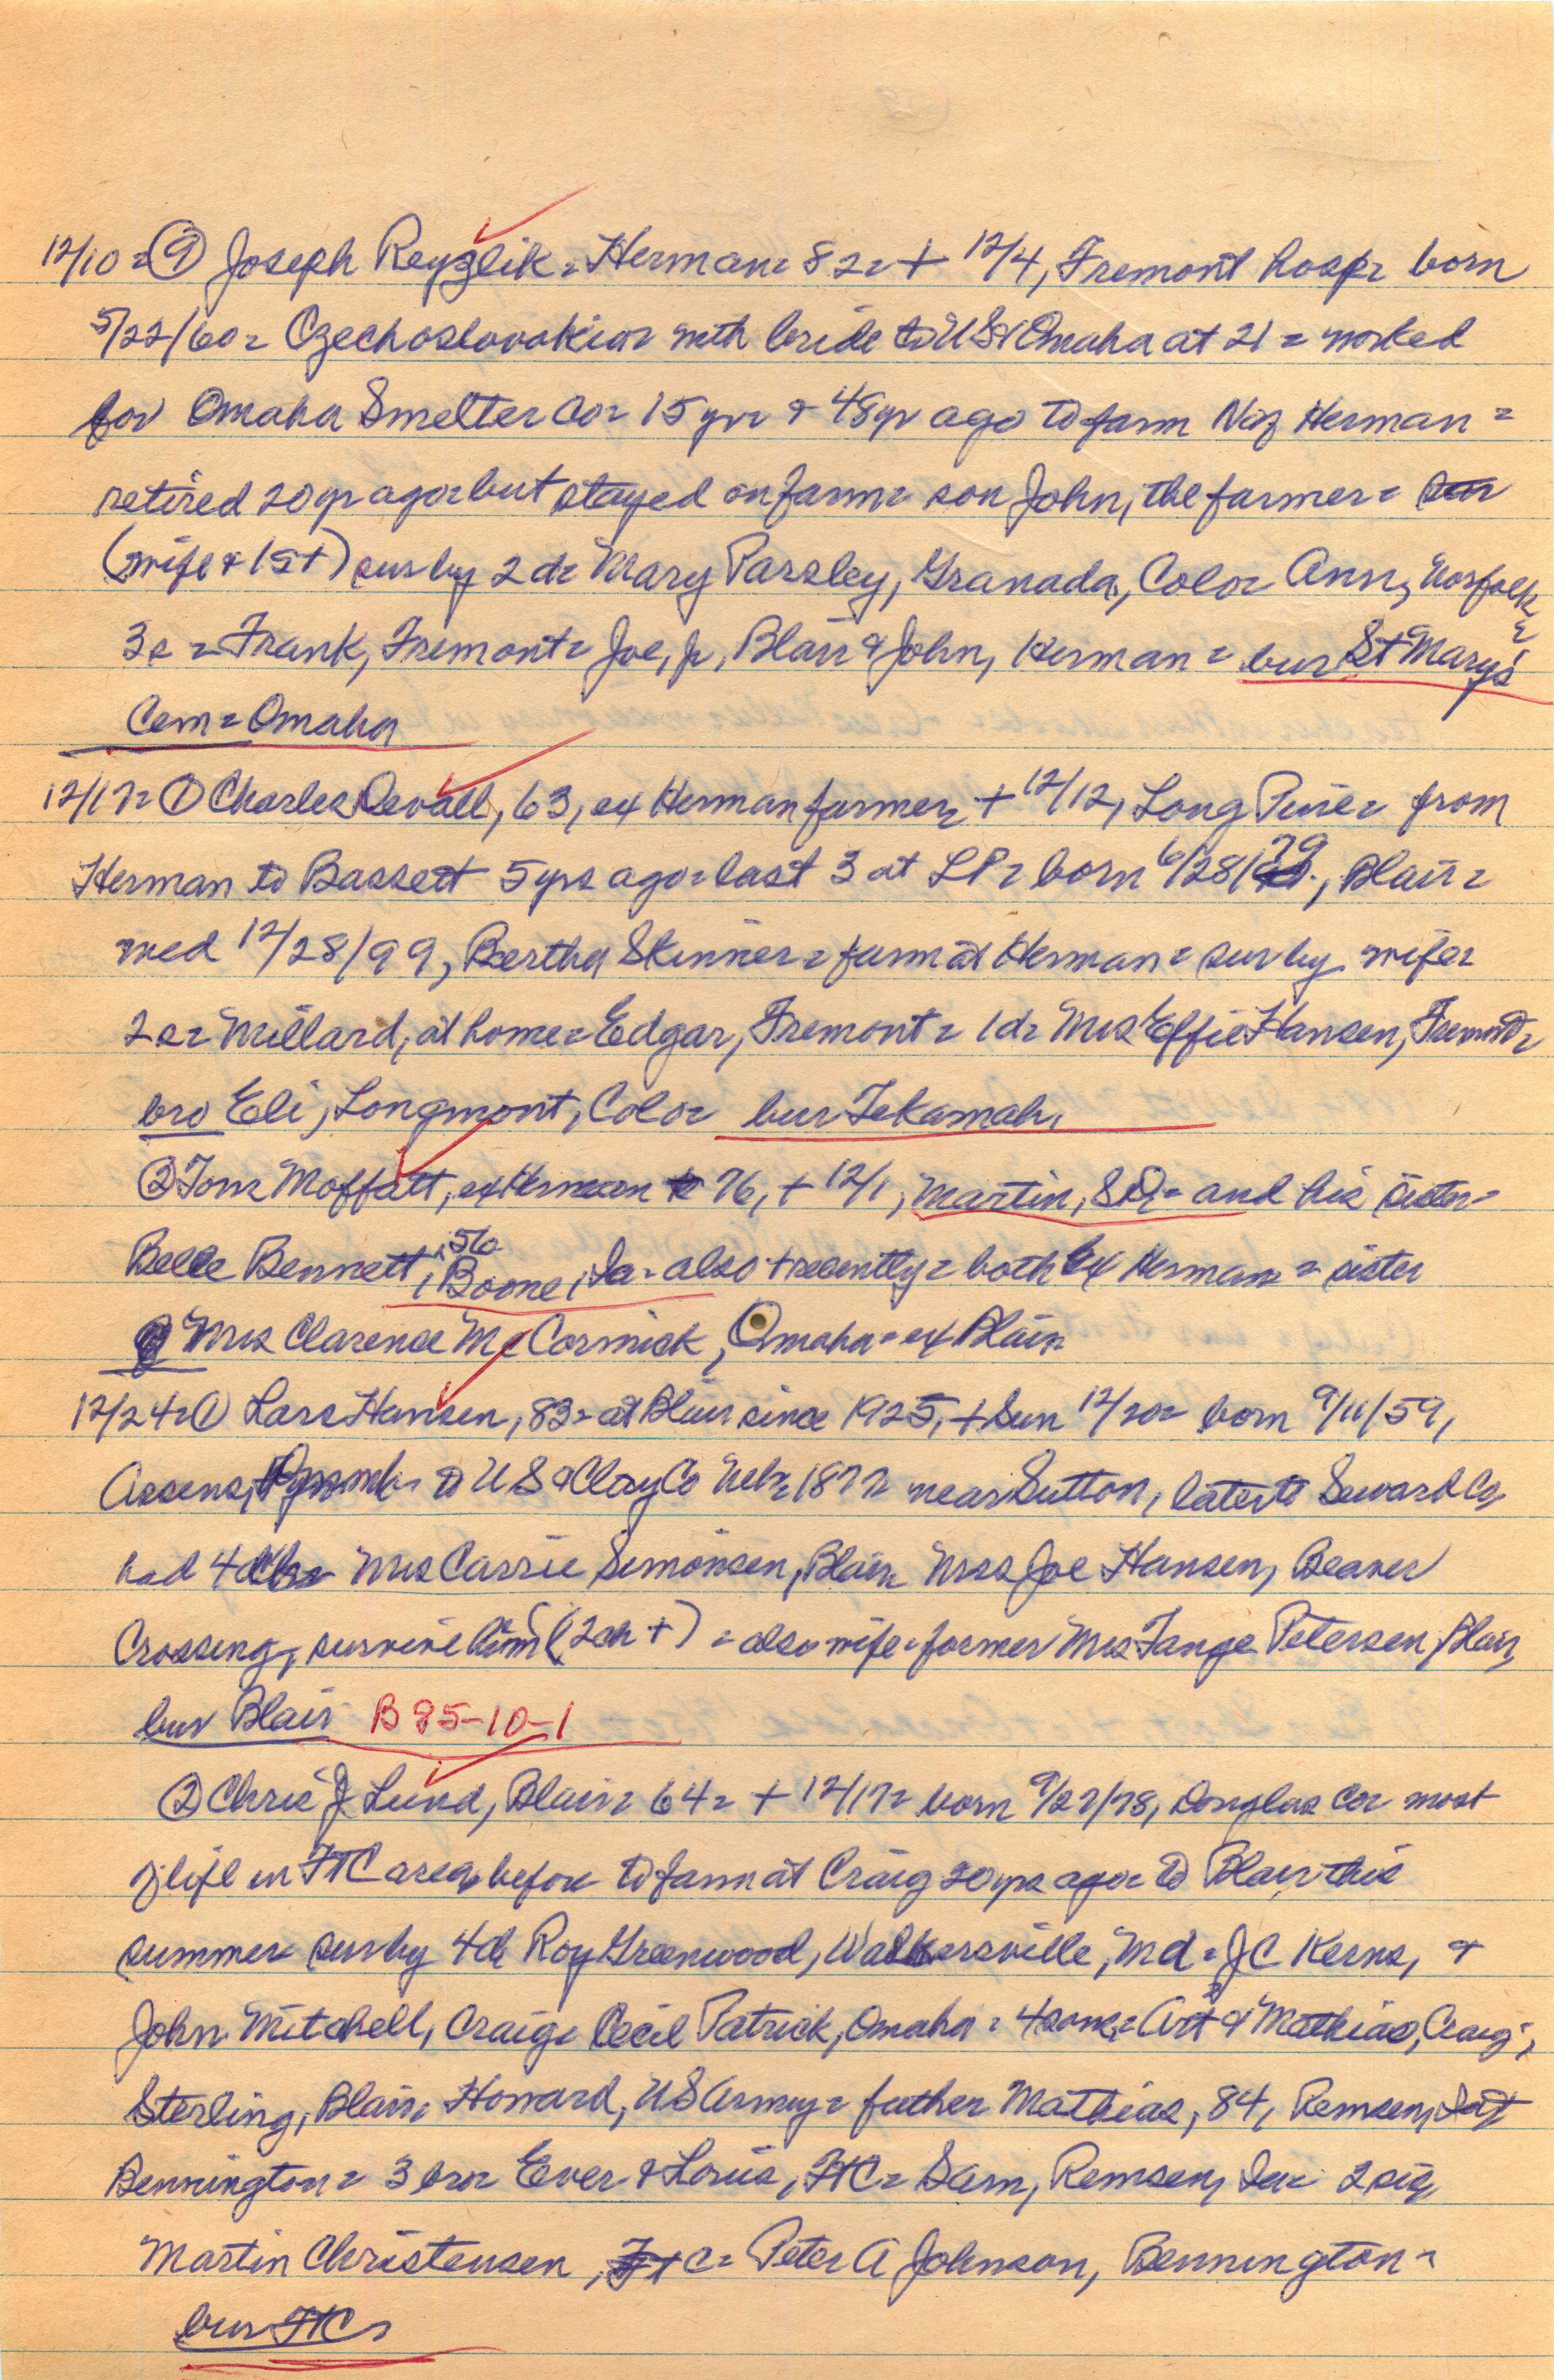 12/10 = ⑨ Joseph Reyzlik = Herman = 82 = + 12/4, Fremont hosp = born
5/22/60 = Czechoslovakia = with bride to US & Omaha at 21 = worked
for Omaha Smelter Co = 15 yr = & 45 yr ago to farm Herman =
retired 20 yr ago = but stayed on farm = son John, the farmer =
(wife & 1s +) sur by 2 d = Mary Parsley, Granada, Colo = Ann, Norfolk =
3 s = Frank, Fremont = Joe, Jr, Blair & John, Herman = bur St Mary's
Cem = Omaha
12/17 = ① Charles Devall, 63, ex Herman farmer, + 12/12, Long Pine = from
Herman to Bassett 5 yrs ago = last 3 at LP = born 6/28/79, Blair =
wed 12/28/99, Bertha Skinner = farm at Herman = sur by wife =
2 s = Millard, at home = Edgar, Fremont = 1 d = Mrs Effie Hansen, Fremont =
bro Eli, Longmont, Colo = bur Tekamah,
② Tom Moffatt, ex Herman 76, + 12/1, Martin, SD, = and his sister =
Belle Bennett, 56, Boone, Ia = also + recently = both ex Herman = sister
Mrs Clarence McCormick, Omaha = ex Blair
12/24 = ① Lars Hansen, 83 = at Blair since 1925, + Sun 12/20 = born 9/11/59,
Assens, = to US & Clay Co Neb = 1877 near Sutton, later to Seward Co,
had 4 ch = Mrs Carrie Simonsen, Blair Mrs Joe Hansen, Beaver
Crossing, survive him (2 ch +) = also wife = former Mrs Tange Petersen, Blair,
bur Blair B 85-10-1
② Chris J Lund, Blair = 64 = + 12/17 = born 9/27/78, Douglas Co = most
of life in FtC area, before to farm at Craig 20 yrs ago = to Blair this
summer = sur by 4 d Roy Greenwood, Walkersville, Md = JC Kerns, &
John Mitchell, Craig = Cecil Patrick, Omaha = 4 sons = Art & Mathias, Craig,
Sterling, Blair, Howard, US Army = father Mathias, 84,
Bennington = 3 bro = Ever & Loris, FtC = Sam, Remsen, Ia = 2 sis,
Martin Christensen, Ft C = Peter A Johnson, Bennington =
bur FtC =